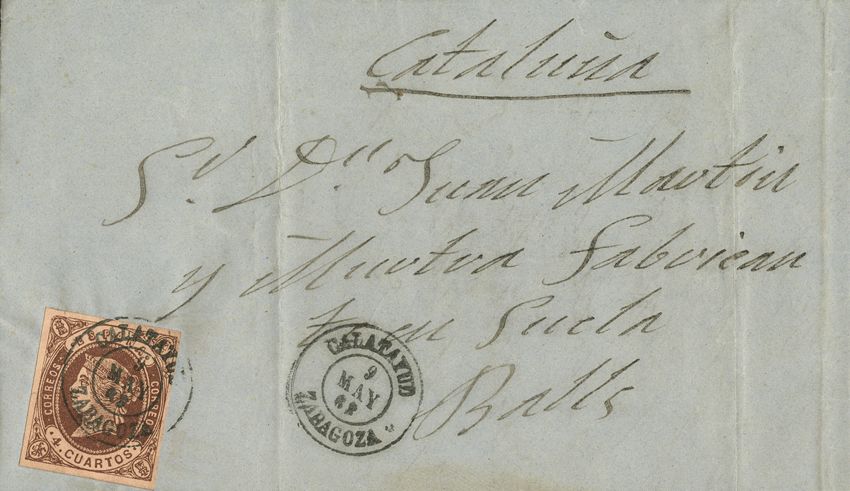 Cataluña
Sr Dn Juan Martin
y Muotva Fabrican
te en Suela
Balls
CALATAYUD
9
MAY
62
ZARAGOZA
CORREOS
CORREOS
4 CUARTOS
CALATAYUD
9
MAY
62
ZARAGOZA